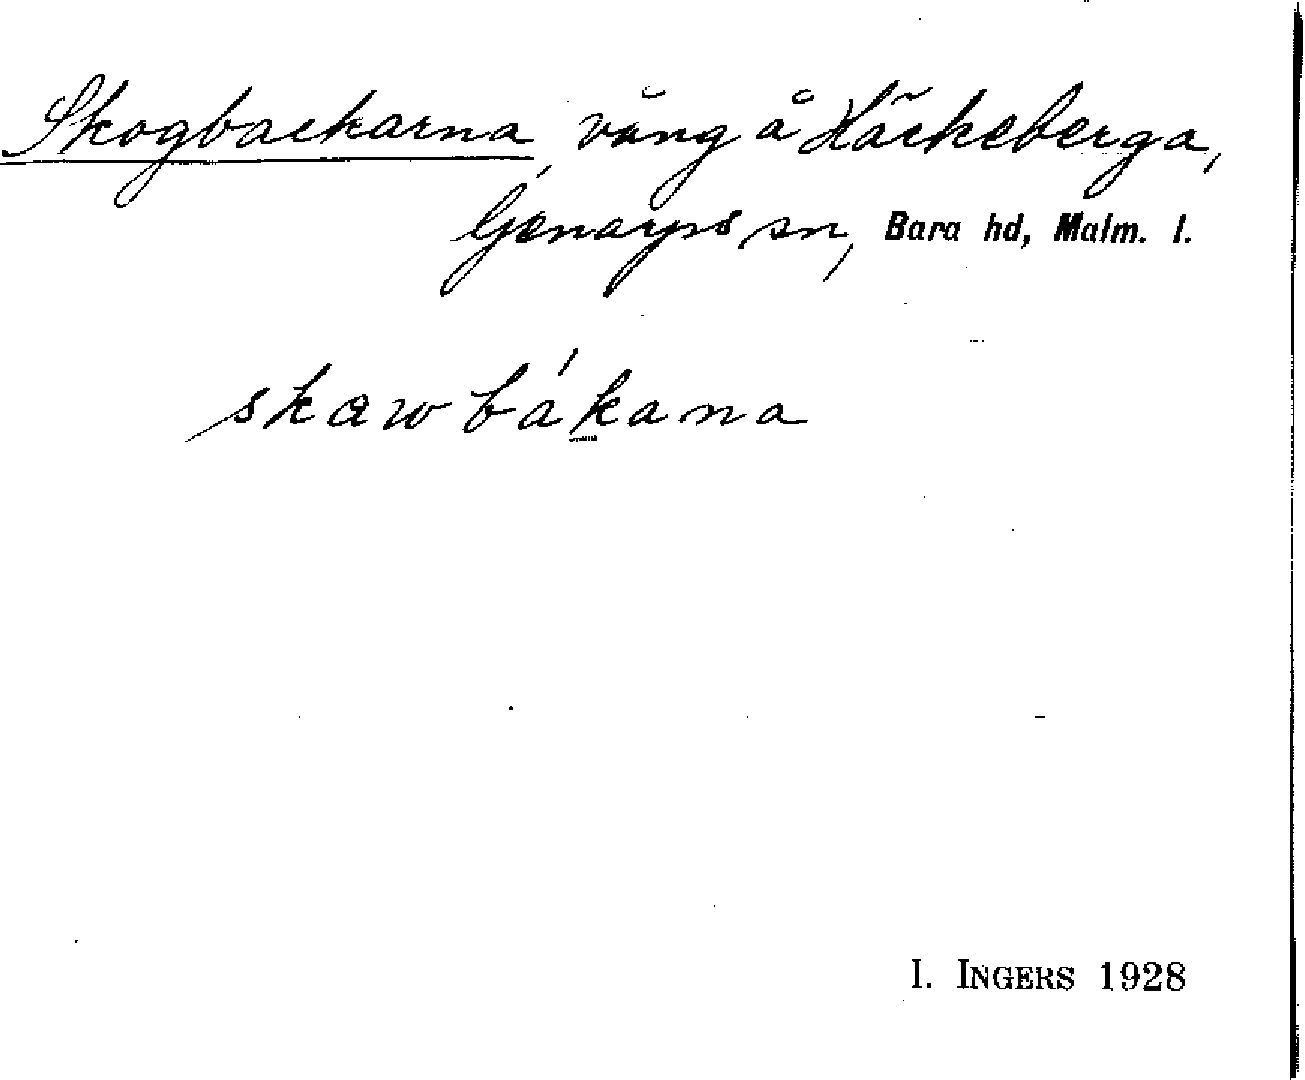 Skogbackarna, vång å Häckeberga,
Genarps sn, Bara hd, Malm. l.
skawbákana
I. INGERS 1928